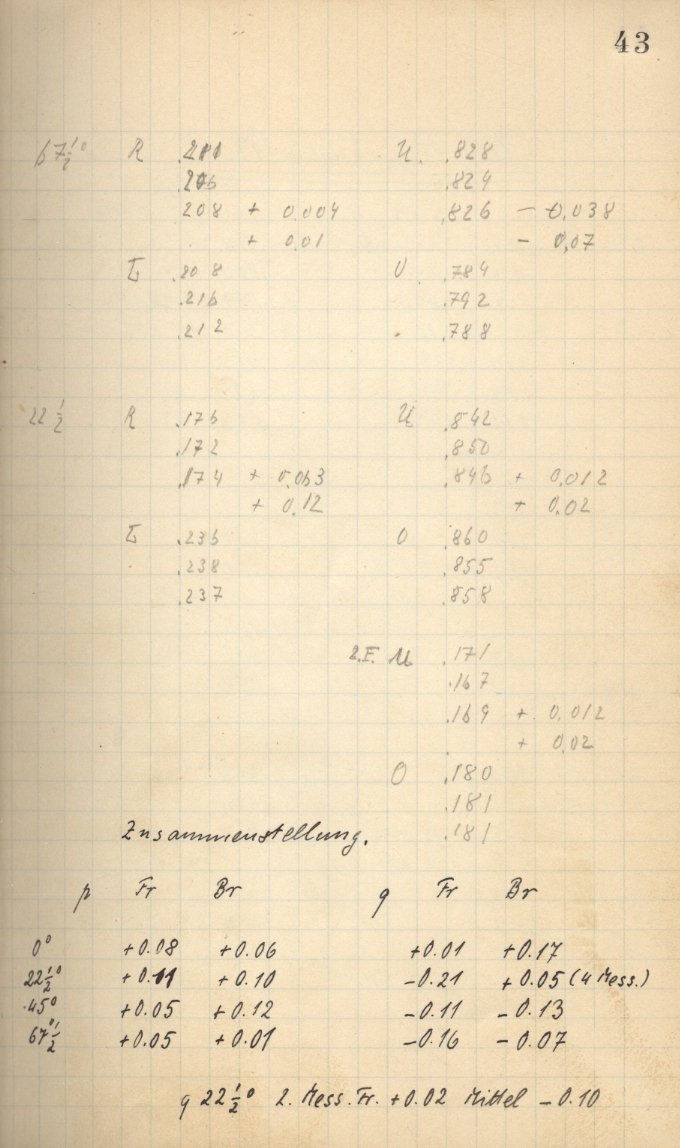 43
67½° R .210 U. .828
.206 .824
208 + 0.004 .826 - 0,038
+ 0.01 - 0,07
L .208 O .784
.216 .792
.212 .788
22½ R .176 U .842
.172 .850
.174 + 0.063 .846 + 0,012
+ 0.12 + 0.02
L .236 O .860
.238 .855
.237 .858
2.F. U .171
.167
.169 + 0.012
+ 0,02
O .180
.181
.181
Zusammenstellung.
p Fr Br q Fr Br
0° +0.08 +0.06 +0.01 +0.17
22½° +0.11 +0.10 -0.21 +0.05 (4 Mess.)
45° +0.05 +0.12 -0.11 -0.13
67½° +0.05 +0.01 -0.16 -0.07
q 22½° 2. Mess. Fr. +0.02 Mittel -0.10